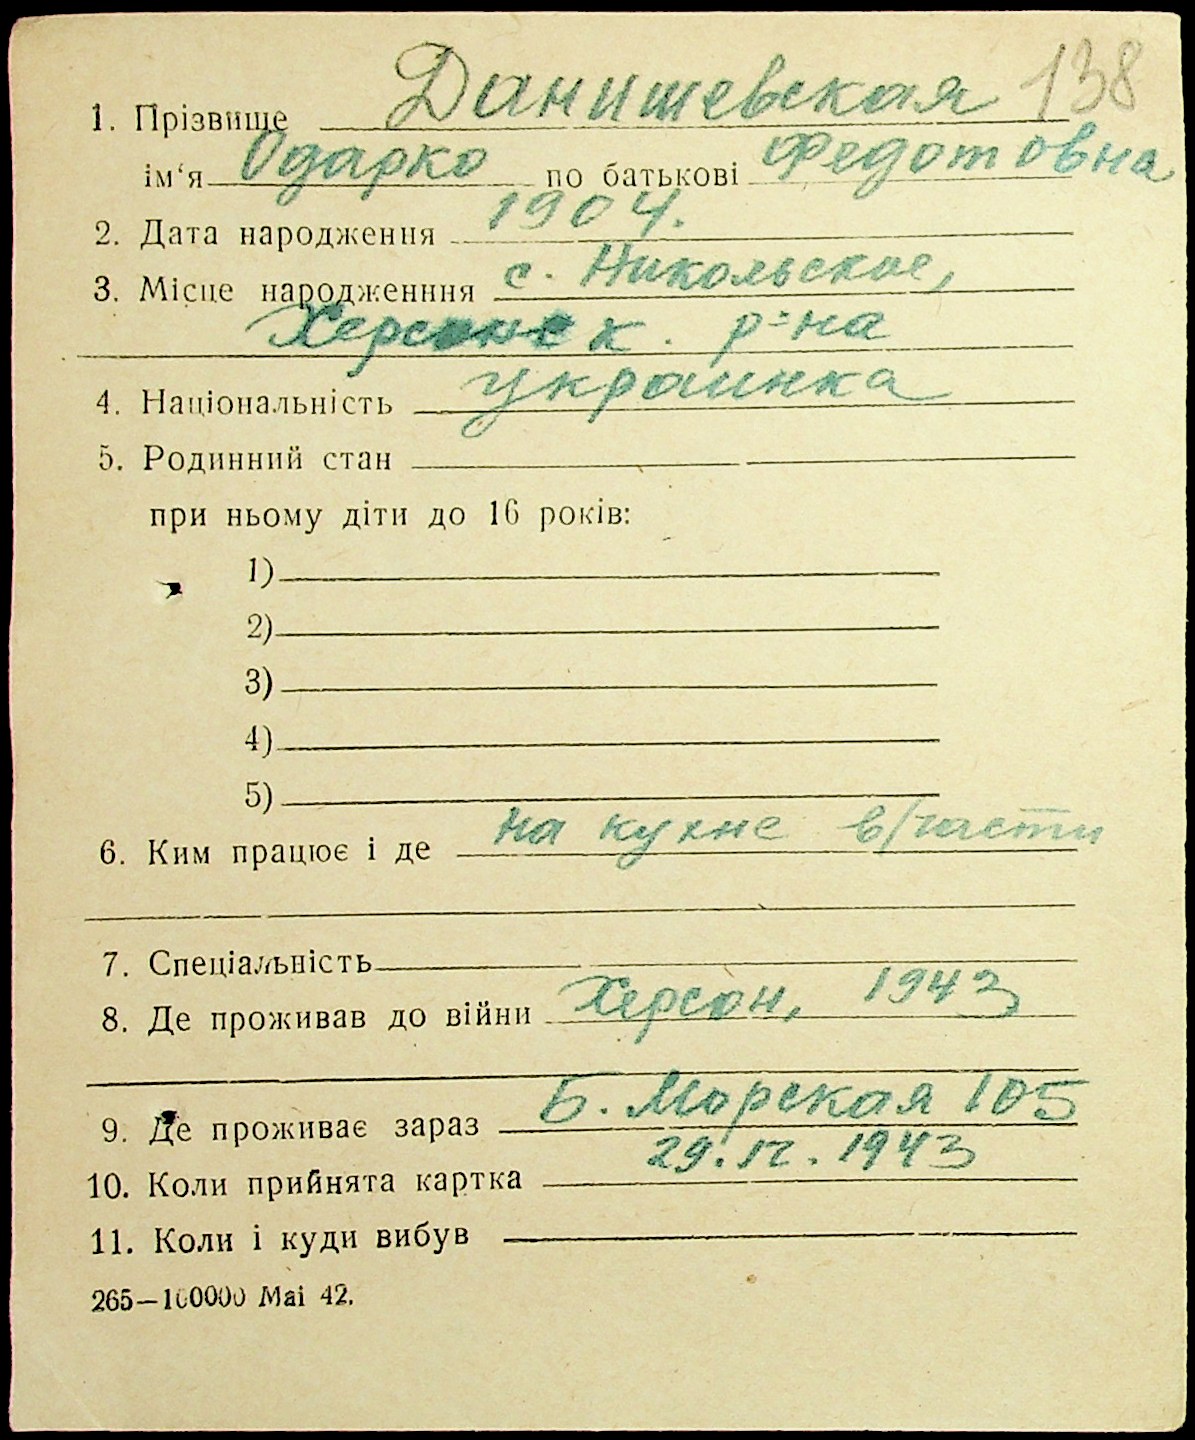 138
1. Прізвище Данишевская
ім‘я Одарко по батькові Федотовна
2. Дата народження 1904.
3. Місце народженння с. Никольское,
Херсонск. р-на
4. Національність украинка
5. Родинний стан
при ньому діти до 16 років:
1)
2)
3)
4)
5)
6. Ким працює і де на кухне в/части
7. Спеціальність
8. Де проживав до війни Херсон, 1943
9. Де проживає зараз Б. Морская 105
10. Коли прийнята картка 29. IV. 1943
11. Коли і куди вибув
265—100000 Mai 42.